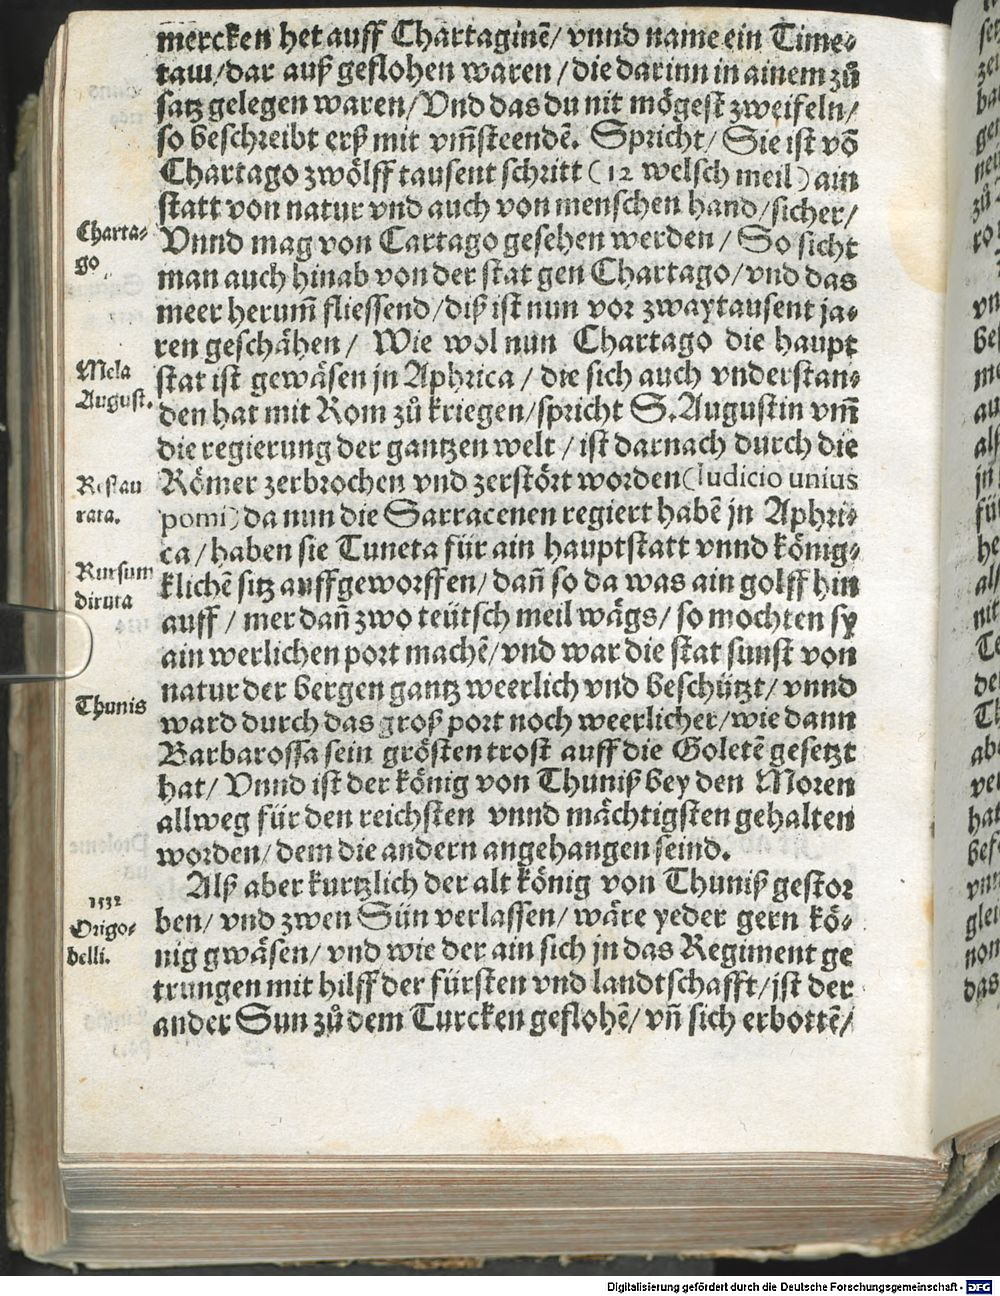 mercken het auff Chartaginē/ vnnd name ein Time⸗
taw/dar auß geflohen waren /die darinn in ainem zů
satz gelegen waren/Vnd das du nit mögest zweifeln/
so beschreibt erß mit vm̃steendē. Spricht/ Sie ist vō
Chartago zwölff tausent schritt (12 welsch meil) ain
statt von natur vnd auch von menschen hand/sicher/
Charta⸗
go
Vnnd mag von Cartago gesehen werden / So sicht
man auch hinab von der stat gen Chartago/vnd das
meer herum̃ fliessend/diß ist nun vor zwaytausent ja⸗
ren geschähen/ Wie wol nun Chartago die haupt
Mela
August.
stat ist gewäsen jn Aphrica / die sich auch vnderstan⸗
den hat mit Rom zů kriegen/spricht S.Augustin vm̃
die regierung der gantzen welt / ist darnach durch die
Restau
rata.
Römer zerbrochen vnd zerstört worden(Iudicio unius
pomi)da nun die Sarracenen regiert habē jn Aphri⸗
ca/haben sie Tuneta für ain hauptstatt vnnd könig⸗
Rursum
diruta
klichē sitz auffgeworffen/dañ so da was ain golff hin
auff / mer dañ zwo teütsch meil wägs/ so mochten sy
ain werlichen port machē/vnd war die stat sunst von
natur der bergen gantz weerlich vnd beschützt/ vnnd
Thunis
ward durch das groß port noch weerlicher/wie dann
Barbarossa sein grösten trost auff die Goletē gesetzt
hat/ Vnnd ist der könig von Thuniß bey den Moren
allweg für den reichsten vnnd mächtigsten gehalten
worden/dem die andern angehangen seind.
Alß aber kurtzlich der alt könig von Thuniß gestor
1532
Origo⸗
belli.
ben/ vnd zwen Sün verlassen/ wäre yeder gern kö⸗
nig gwäsen/ vnd wie der ain sich jn das Regiment ge
trungen mit hilff der fürsten vnd landtschafft/jst der
ander Sun zů dem Turcken geflohē/ vñ sich erbottē/
Digitalisierung gefördert durch die Deutsche Forschungsgemeinschaft - DFG